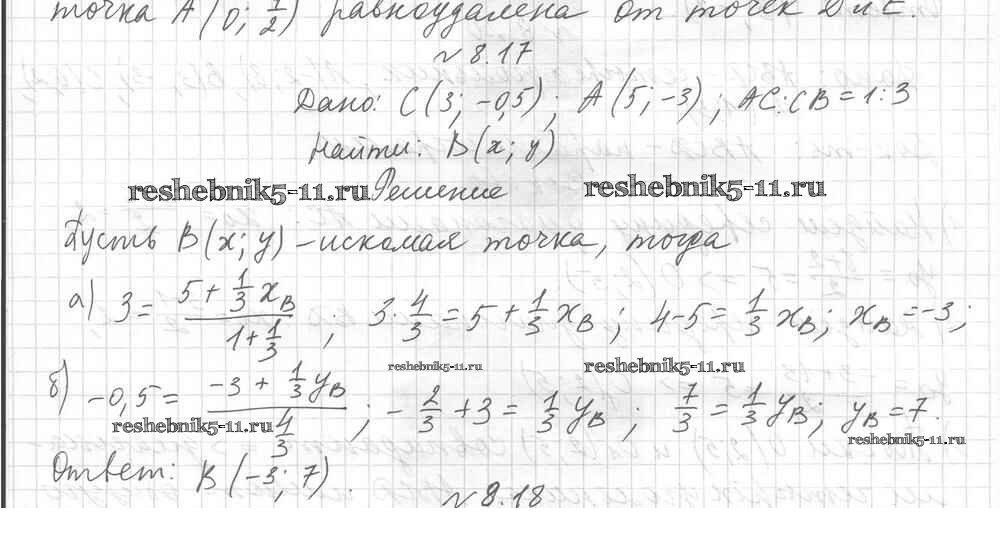 точка A(0; 7/2) равноудалена от точек D и E.
№ 8.17
Дано: C(3; -0,5); A(5; -3); AC:CB = 1:3
Найти: B(x; y)
reshebnik5-11.ru Решение reshebnik5-11.ru
Пусть B(x; y) - искомая точка, тогда
а) 3 = (5 + 1/3 x_B)/(1 + 1/3); 3·4/3 = 5 + 1/3 x_B; 4-5 = 1/3 x_B; x_B = -3;
reshebnik5-11.ru reshebnik5-11.ru
б) -0,5 = (-3 + 1/3 y_B)/(4/3); -2/3 + 3 = 1/3 y_B; 7/3 = 1/3 y_B; y_B = 7.
reshebnik5-11.ru reshebnik5-11.ru
Ответ: B(-3; 7).
№ 8.18